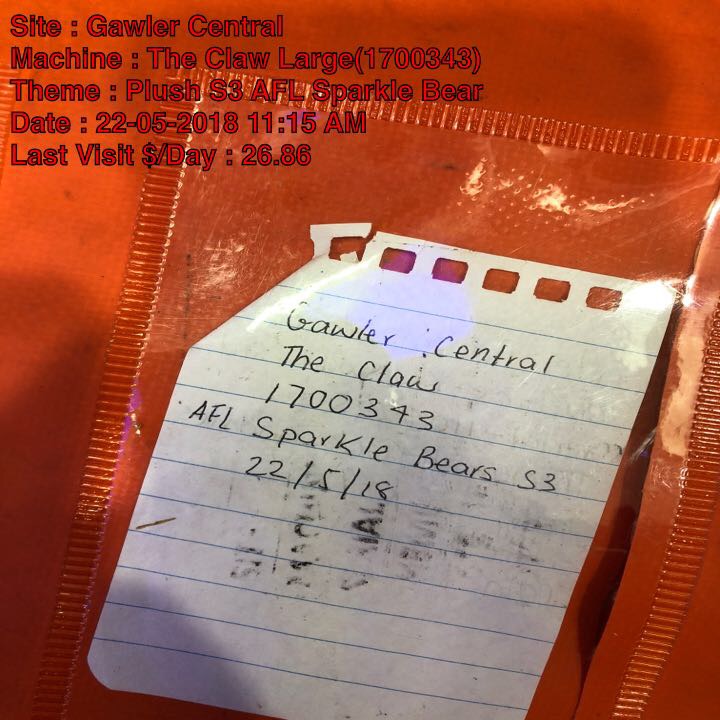 Site : Gawler Central
Machine : The Claw Large(1700343)
Theme : Plush S3 AFL Sparkle Bear
Date : 22-05-2018 11:15 AM
Last Visit $/Day : 26.86
Gawler Central
The Claw
1700343
AFL Sparkle Bears S3
22/5/18